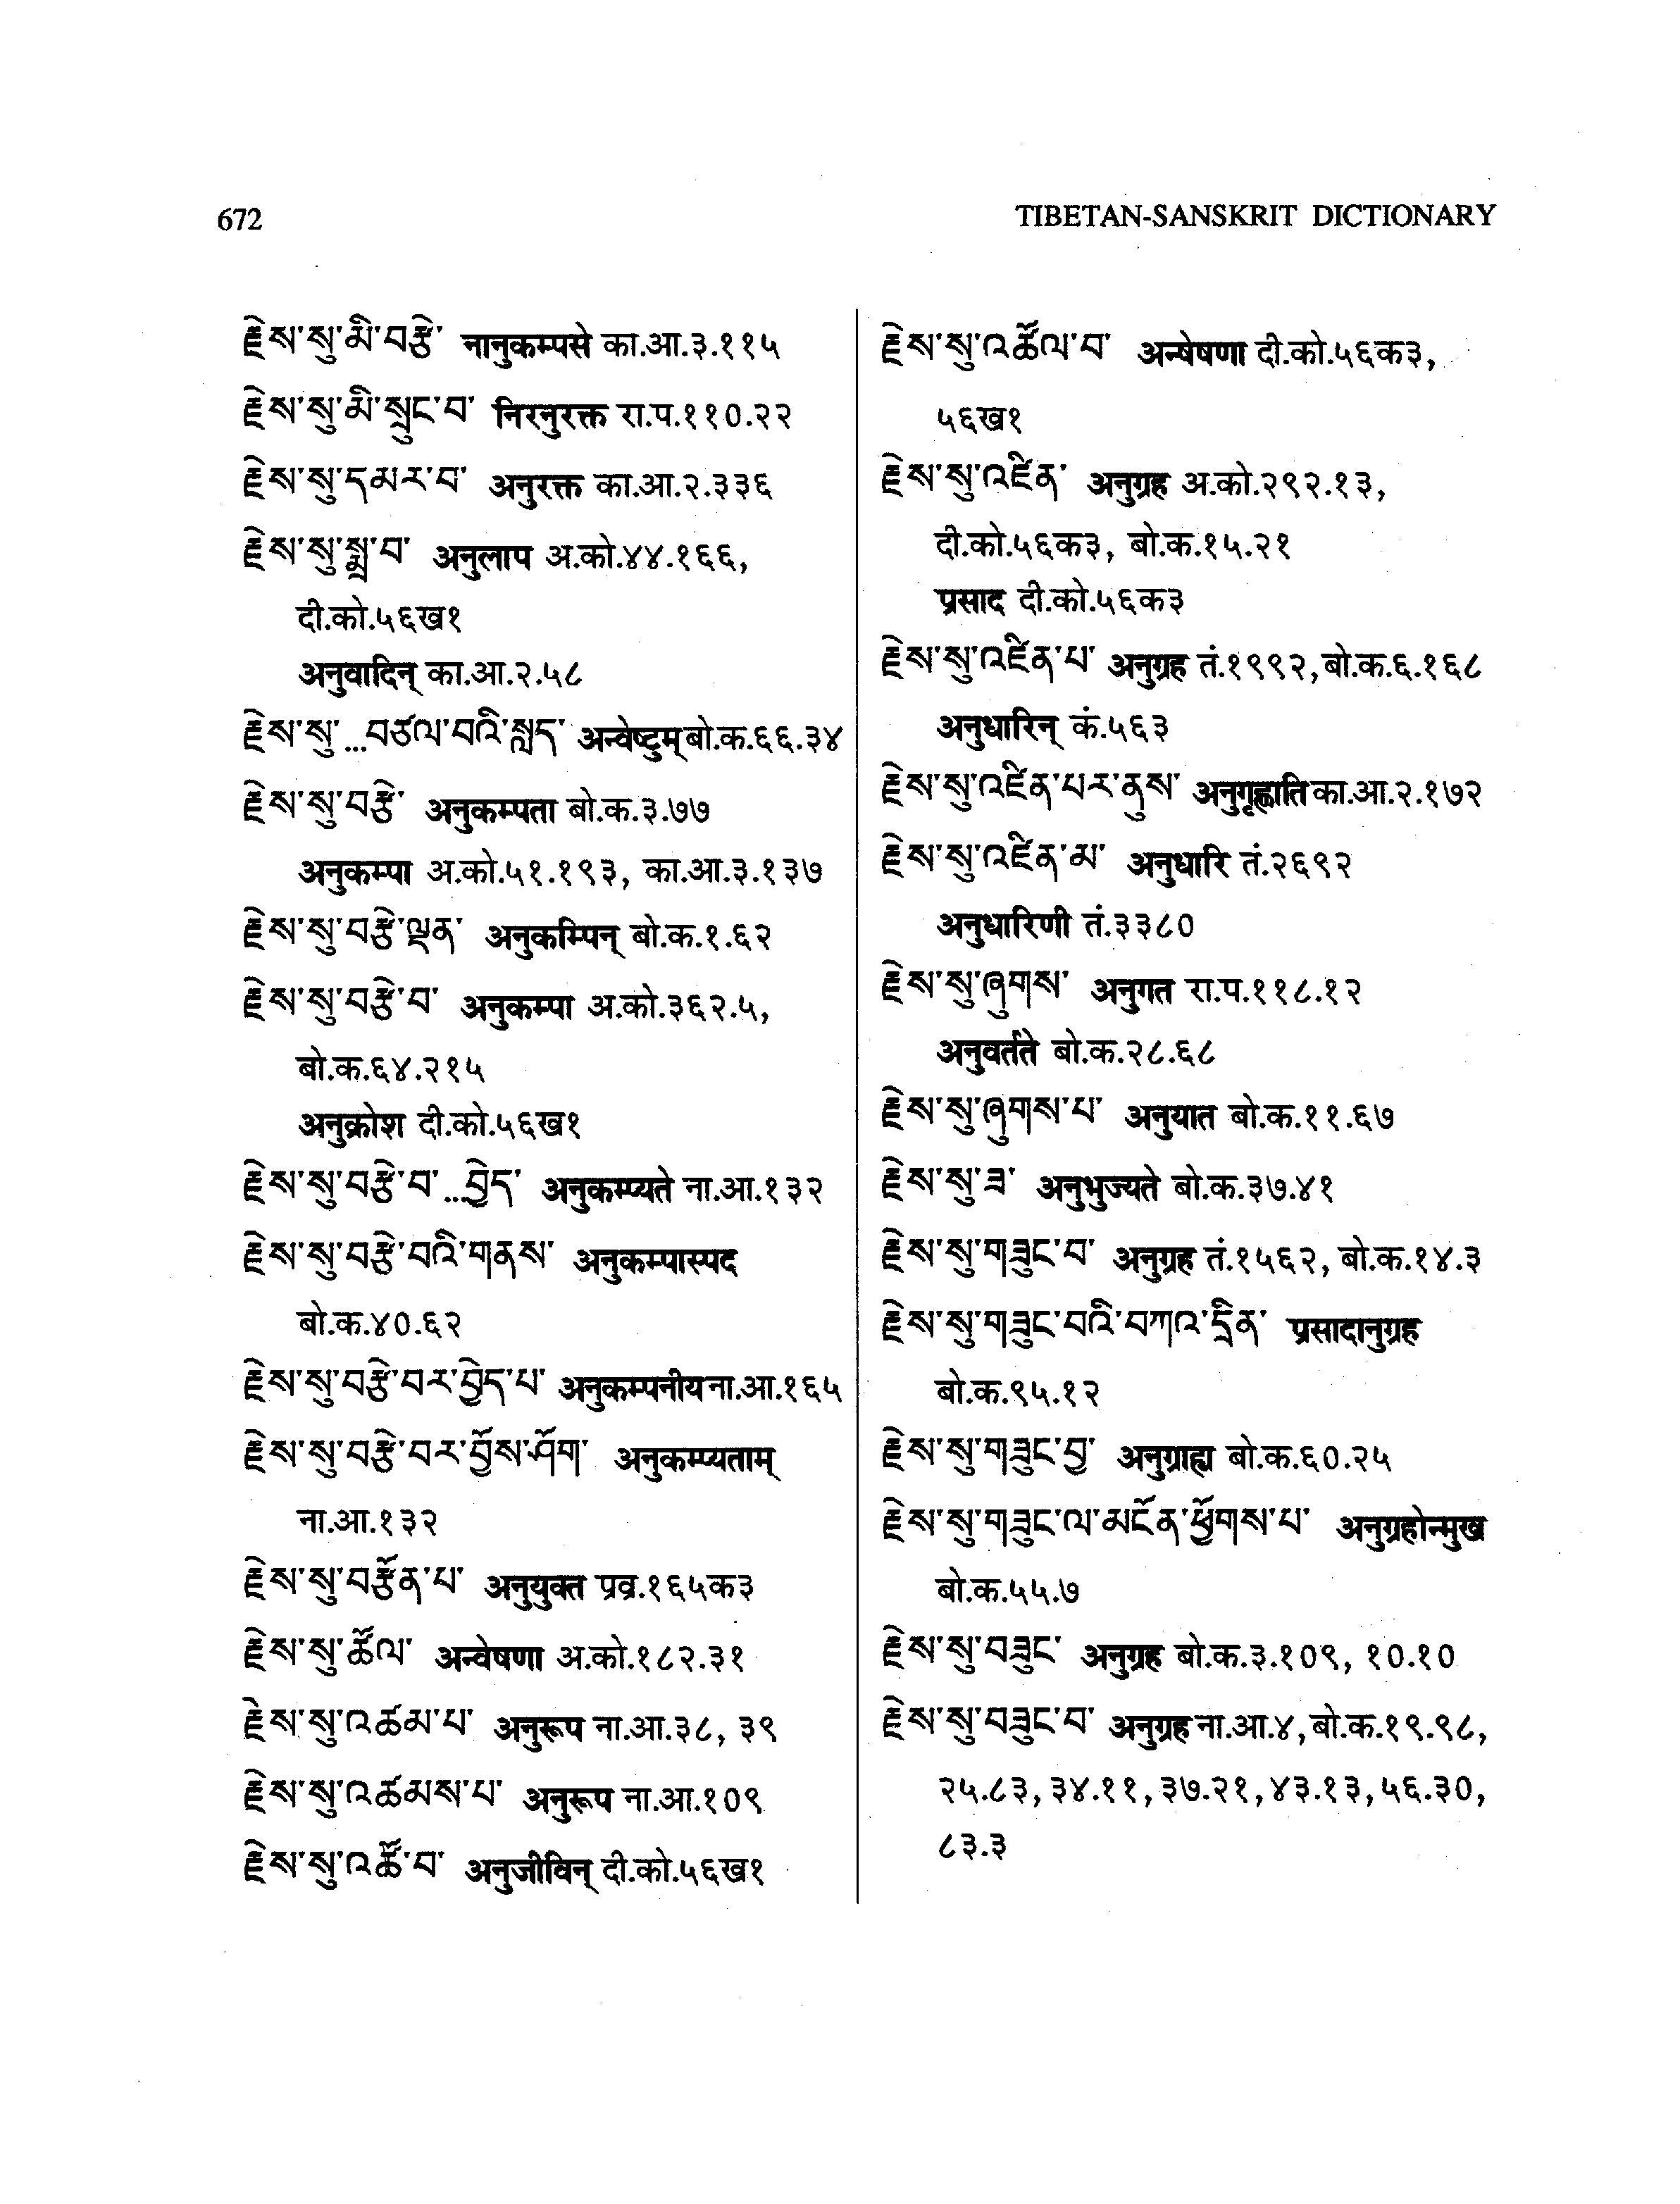 672
TIBETAN-SANSKRIT DICTIONARY
རྗེས་སུ་མི་བརྩེ་ नानुकम्पसे का.आ.३.११५
རྗེས་སུ་མི་སྲུང་བ་ निरनुरक्त रा.प.११०.२२
རྗེས་སུ་དམར་བ་ अनुरक्त का.आ.२.३३६
རྗེས་སུ་སྨྲ་བ་ अनुलाप अ.को.४४.१६६,
दी.को.५६ख१
अनुवादिन् का.आ.२.५८
རྗེས་སུ་...བཙལ་བའི་སླད་ अन्वेष्टुम् बो.क.६६.३४
རྗེས་སུ་བརྩེ་ अनुकम्पता बो.क.३.७७
अनुकम्पा अ.को.५१.१९३, का.आ.३.१३७
རྗེས་སུ་བརྩེ་ལྡན་ अनुकम्पिन् बो.क.१.६२
རྗེས་སུ་བརྩེ་བ་ अनुकम्पा अ.को.३६२.५,
बो.क.६४.२१५
अनुक्रोश दी.को.५६ख१
རྗེས་སུ་བརྩེ་བ་...བྱེད་ अनुकम्प्यते ना.आ.१३२
རྗེས་སུ་བརྩེ་བའི་གནས་ अनुकम्पास्पद
बो.क.४०.६२
རྗེས་སུ་བརྩེ་བར་བྱེད་པ་ अनुकम्पनीय ना.आ.१६५
རྗེས་སུ་བརྩེ་བར་བྱོས་ཤོག་ अनुकम्प्यताम्
ना.आ.१३२
རྗེས་སུ་བརྩོན་པ་ अनुयुक्त प्रव्र.१६५क३
རྗེས་སུ་ཚོལ་ अन्वेषणा अ.को.१८२.३१
རྗེས་སུ་འཚམ་པ་ अनुरूप ना.आ.३८, ३९
རྗེས་སུ་འཚམས་པ་ अनुरूप ना.आ.१०९
རྗེས་སུ་འཚོ་བ་ अनुजीविन् दी.को.५६ख१
རྗེས་སུ་འཚོལ་བ་ अन्षेषणा दी.को.५६क३,
५६ख१
རྗེས་སུ་འཛིན་ अनुग्रह अ.को.२९२.१३,
दी.को.५६क३, बो.क.१५.२१
प्रसाद दी.को.५६क३
རྗེས་སུ་འཛིན་པ་ अनुग्रह तं.१९९२, बो.क.६.१६८
अनुधारिन् कं.५६३
རྗེས་སུ་འཛིན་པར་ནུས་ अनुगृह्णाति का.आ.२.१७२
རྗེས་སུ་འཛིན་མ་ अनुधारि तं.२६९२
अनुधारिणी तं.३३८०
རྗེས་སུ་ཞུགས་ अनुगत रा.प.११८.१२
अनुवर्तते बो.क.२८.६८
རྗེས་སུ་ཞུགས་པ་ अनुयात बो.क.११.६७
རྗེས་སུ་ཟ་ अनुभुज्यते बो.क.३७.४१
རྗེས་སུ་གཟུང་བ་ अनुग्रह तं.१५६२, बो.क.१४.३
རྗེས་སུ་གཟུང་བའི་བཀའ་དྲིན་ प्रसादानुग्रह
बो.क.९५.१२
རྗེས་སུ་གཟུང་བྱ་ अनुग्राह्य बो.क.६०.२५
རྗེས་སུ་གཟུང་ལ་མངོན་ཕྱོགས་པ་ अनुग्रहोन्मुख
बो.क.५५.७
རྗེས་སུ་བཟུང་ अनुग्रह बो.क.३.१०९, १०.१०
རྗེས་སུ་བཟུང་བ་ अनुग्रह ना.आ.४, बो.क.१९.९८,
२५.८३, ३४.११, ३७.२१, ४३.१३, ५६.३०,
८३.३